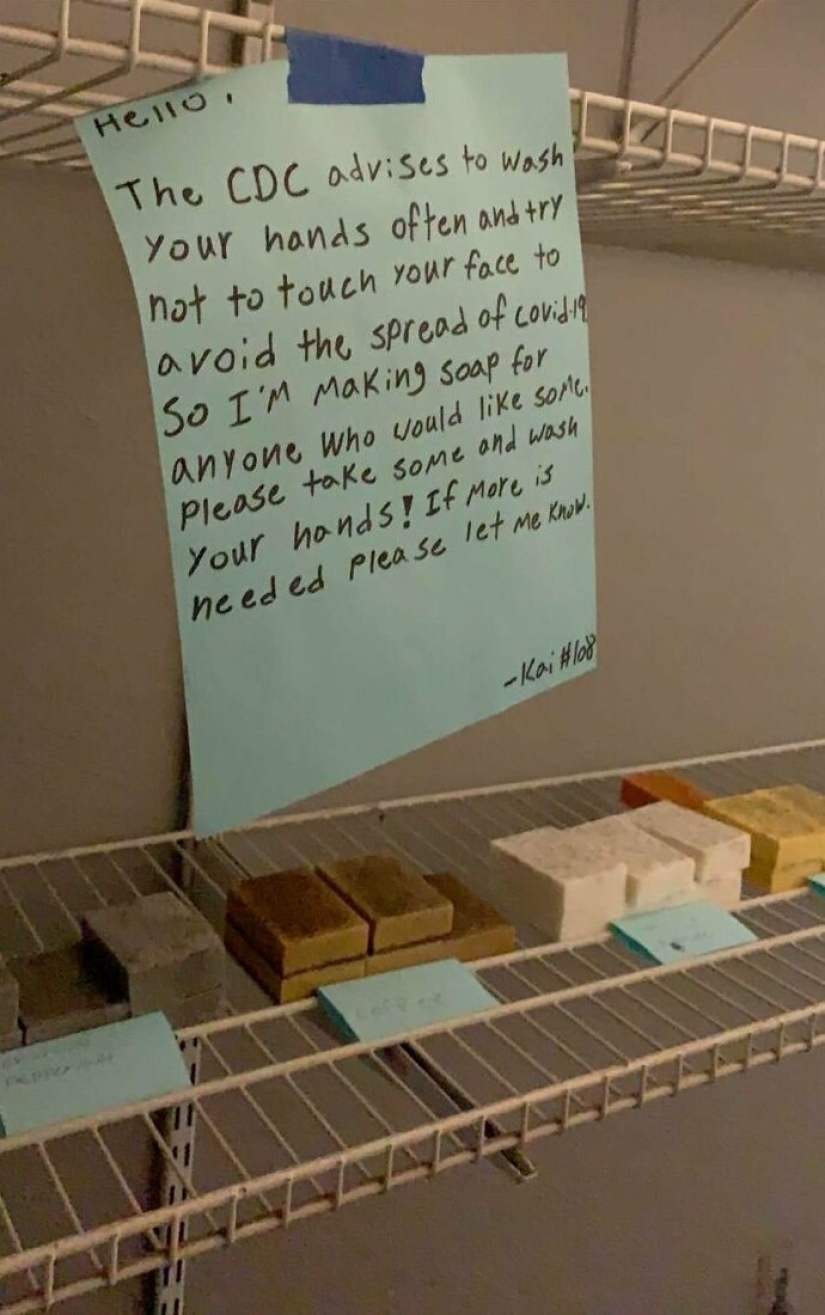 Hello,
The CDC advises to wash
your hands often and try
not to touch your face to
avoid the spread of covid-19
So I'm making soap for
anyone who would like some.
Please take some and wash
your hands! If more is
needed please let me know.
-Kai #108
Peppermint
Coffee